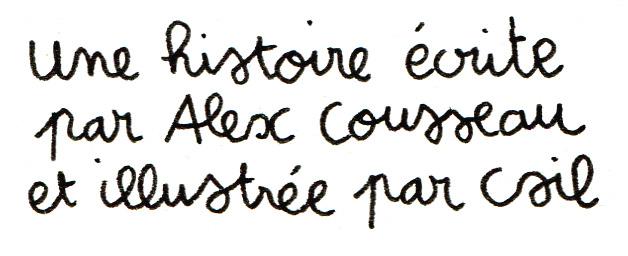 Une histoire écrite
par Alex Cousseau
et illustrée par Csil